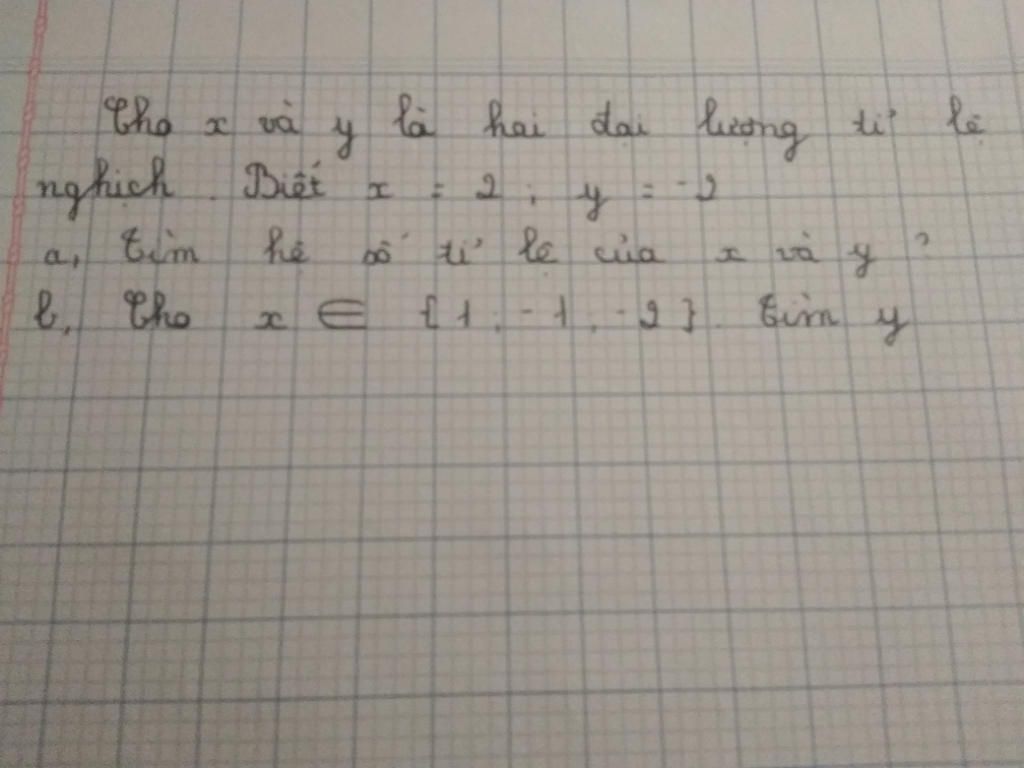 Cho x và y là hai đại lượng tỉ lệ
nghịch. Biết x = 2 ; y = -2
a, Tìm hệ số tỉ lệ của x và y ?
b, Cho x ∈ {1 ; -1 ; -2}. Tìm y